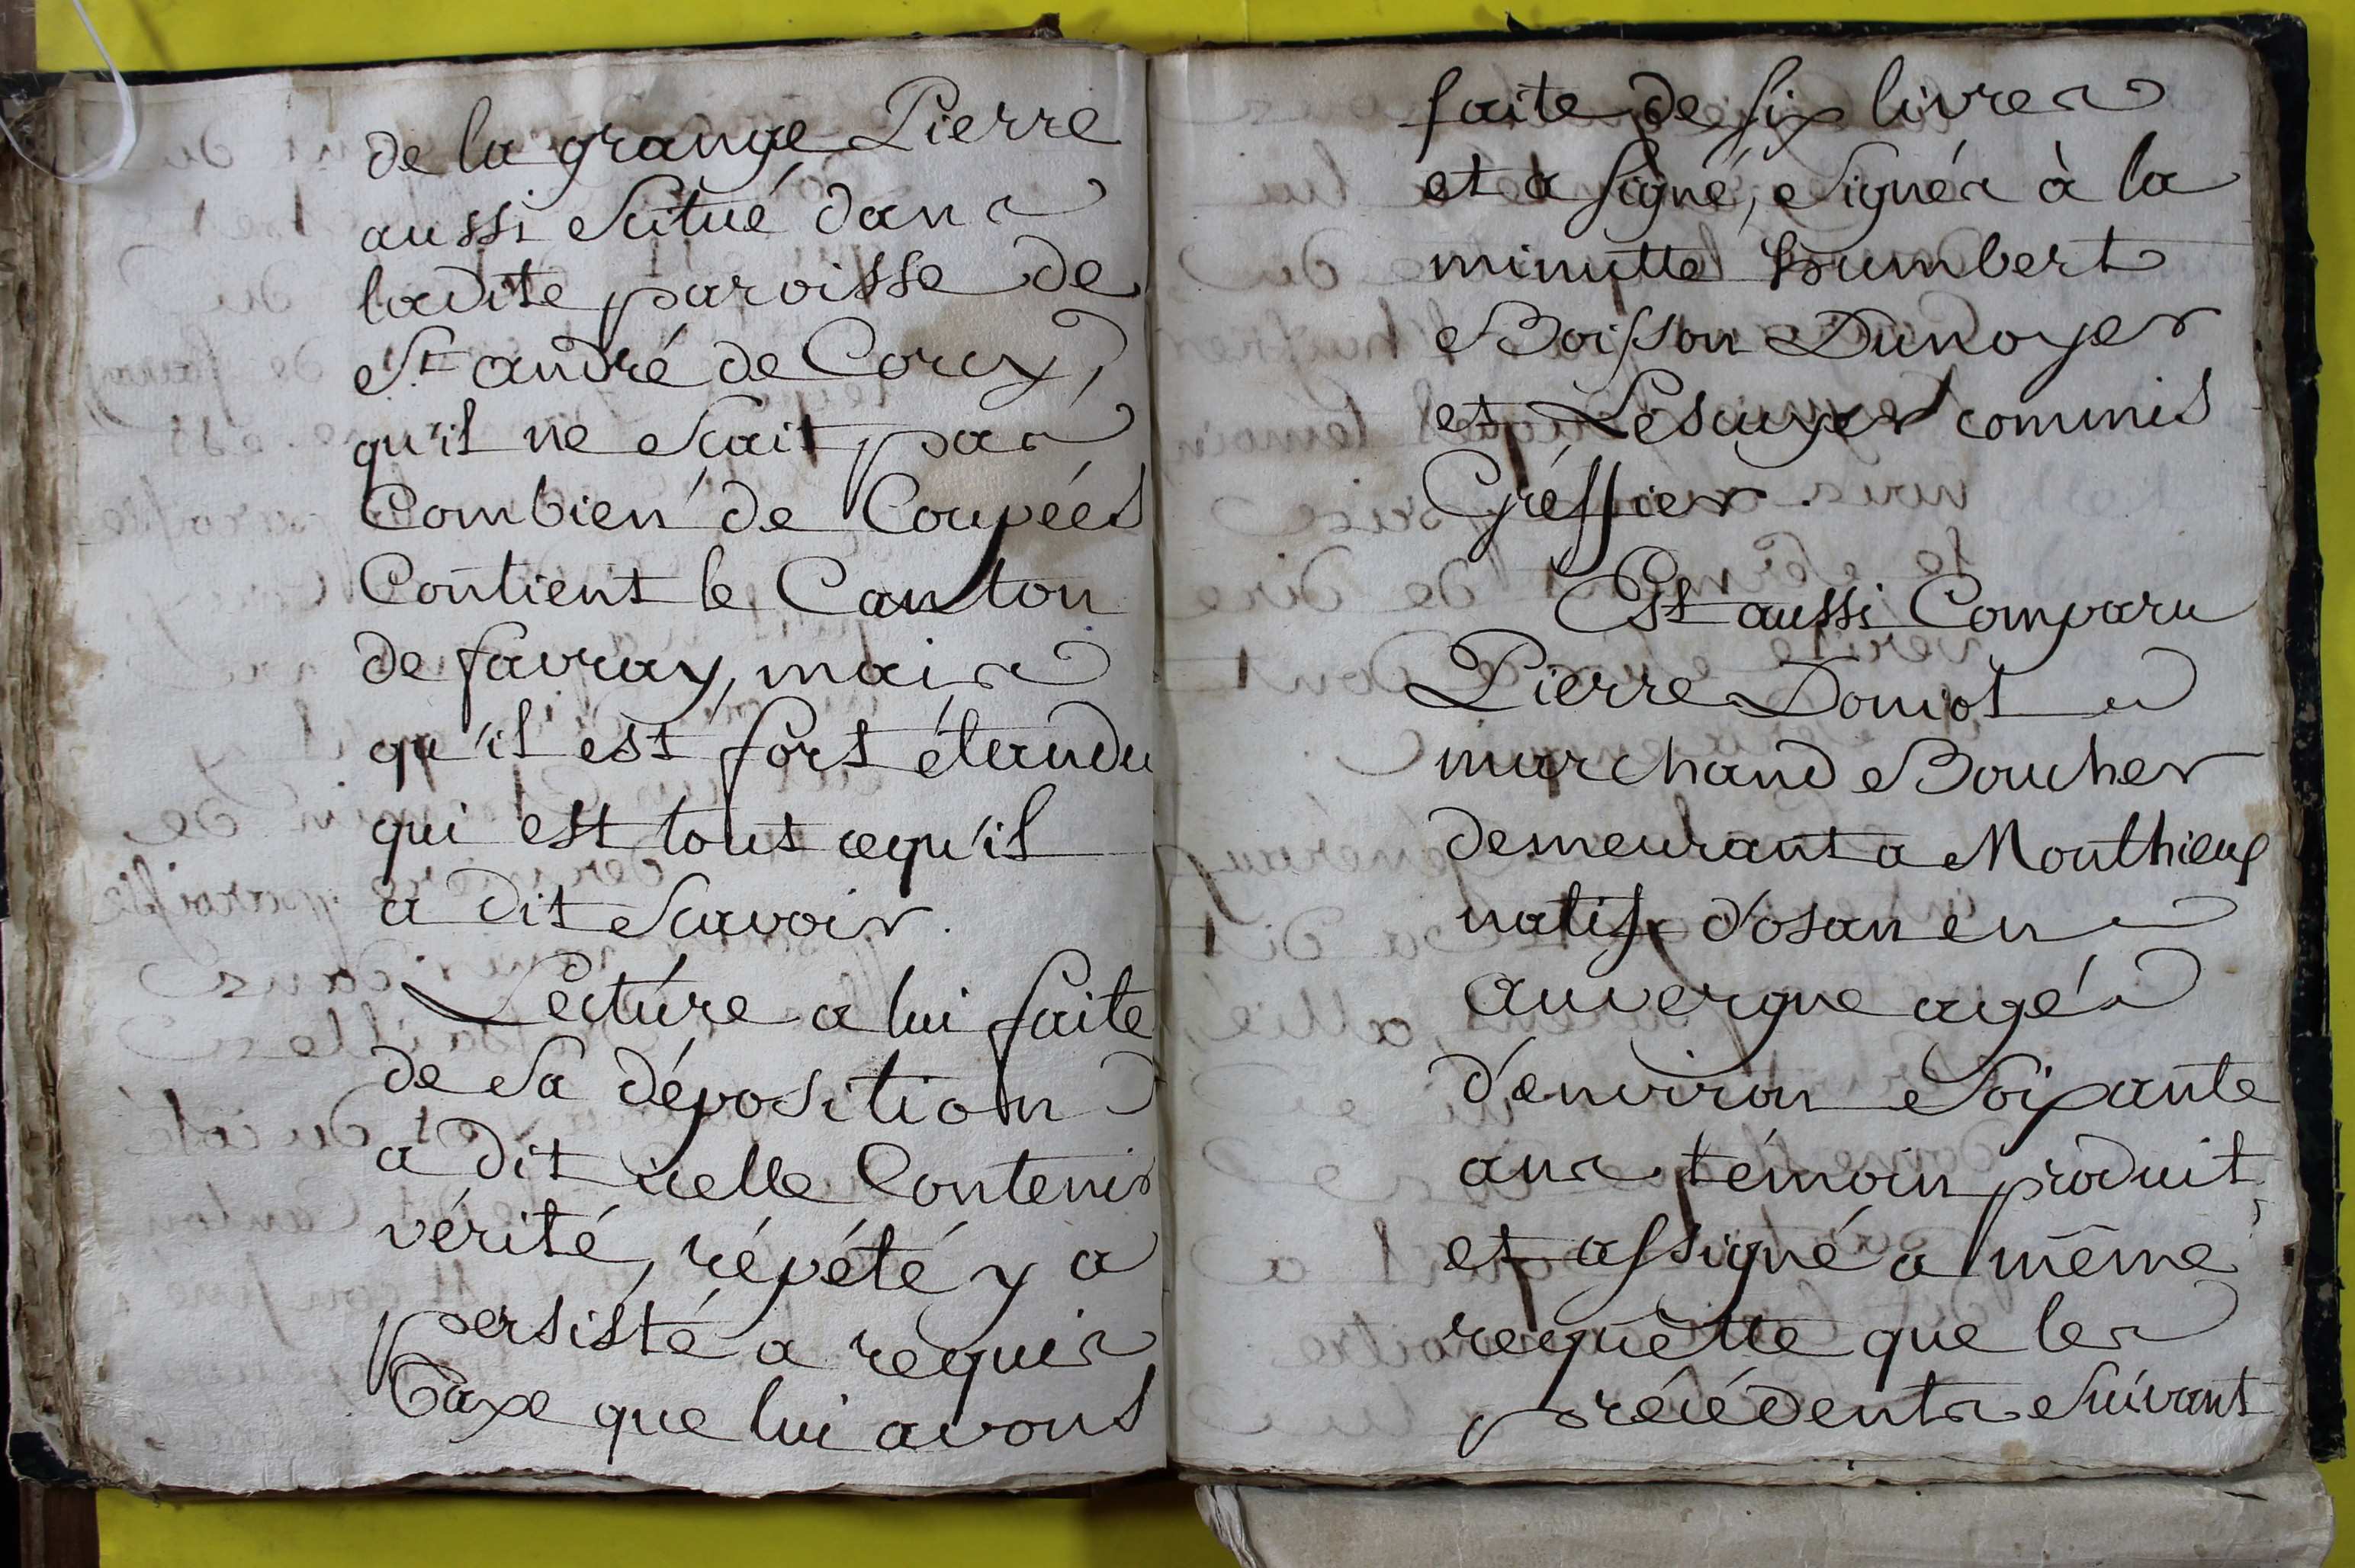 de la grange Pierre
aussi scitué dans
ladite paroisse de
St andré de Corcy,
qu'il ne scait pas
Combien de Coupées
Contient le Canton
de favray, mais
qu'il est fort étandu
qui est tout cequ'il
a dit scavoir.
Lecture a lui faite
de sa déposition
a dit icelle Contenir
vérité, répété y a
persisté a requis
taxe que lui avons
faite de six livres
et a signé, signés à la
minutte humbert
Boisson Dunoyer
et Lescuyer commis
Gréffier.
Est aussi Comparu
Pierre Doniol
marchand Boucher
demeurant a Monthieux
natif d'osan en
auvergne agé
d'environ soixante
ans témoin produit
et assigné a même
requêtte que les
précédents suivant